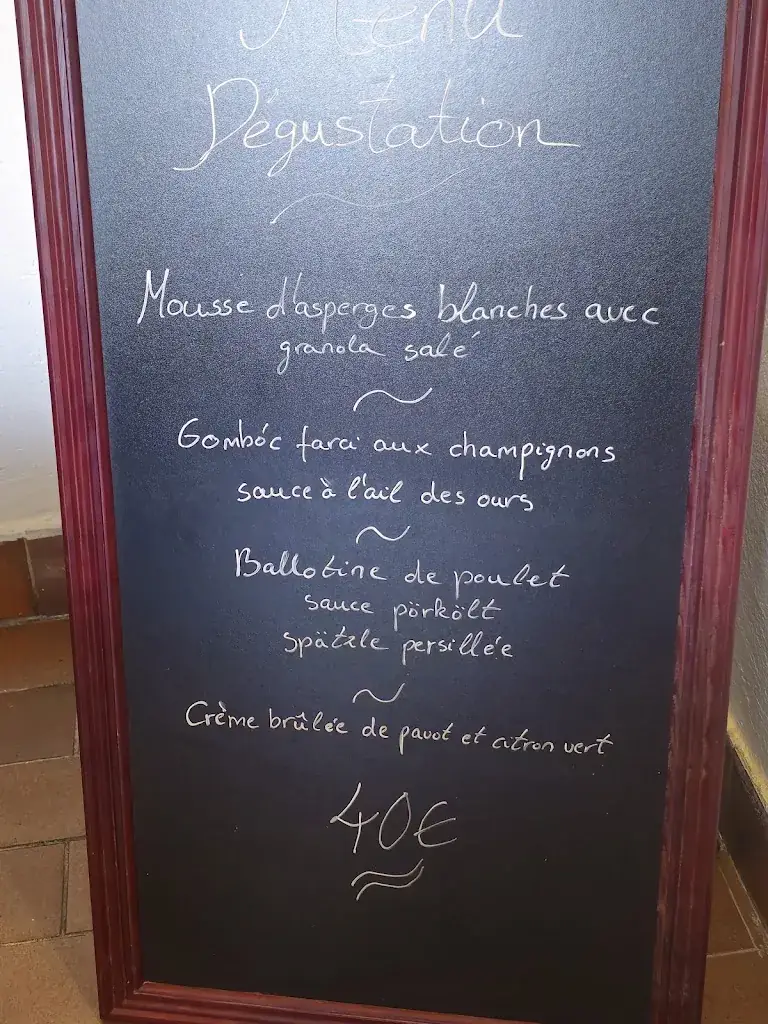 Menu
Dégustation
Mousse d'asperges blanches avec
granola salé
Gombóc farci aux champignons
sauce à l'ail des ours
Ballotine de poulet
sauce pörkölt
spätzle persillée
Crème brûlée de pavot et citron vert
40€